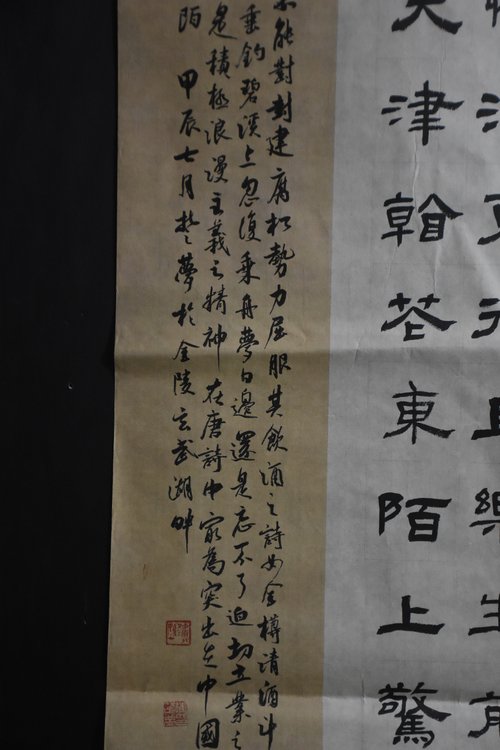 憶江東行且樂生前
天津花東陌上驚
不能對封建腐朽勢力屈服其飲酒之詩如金樽清酒斗
垂釣碧溪上忽復乘舟夢日邊還是忘不了迫切立業之
是積極浪漫主義之精神在唐詩中最為突出是中國
陌 甲辰七月楚夢於金陵玄武湖畔